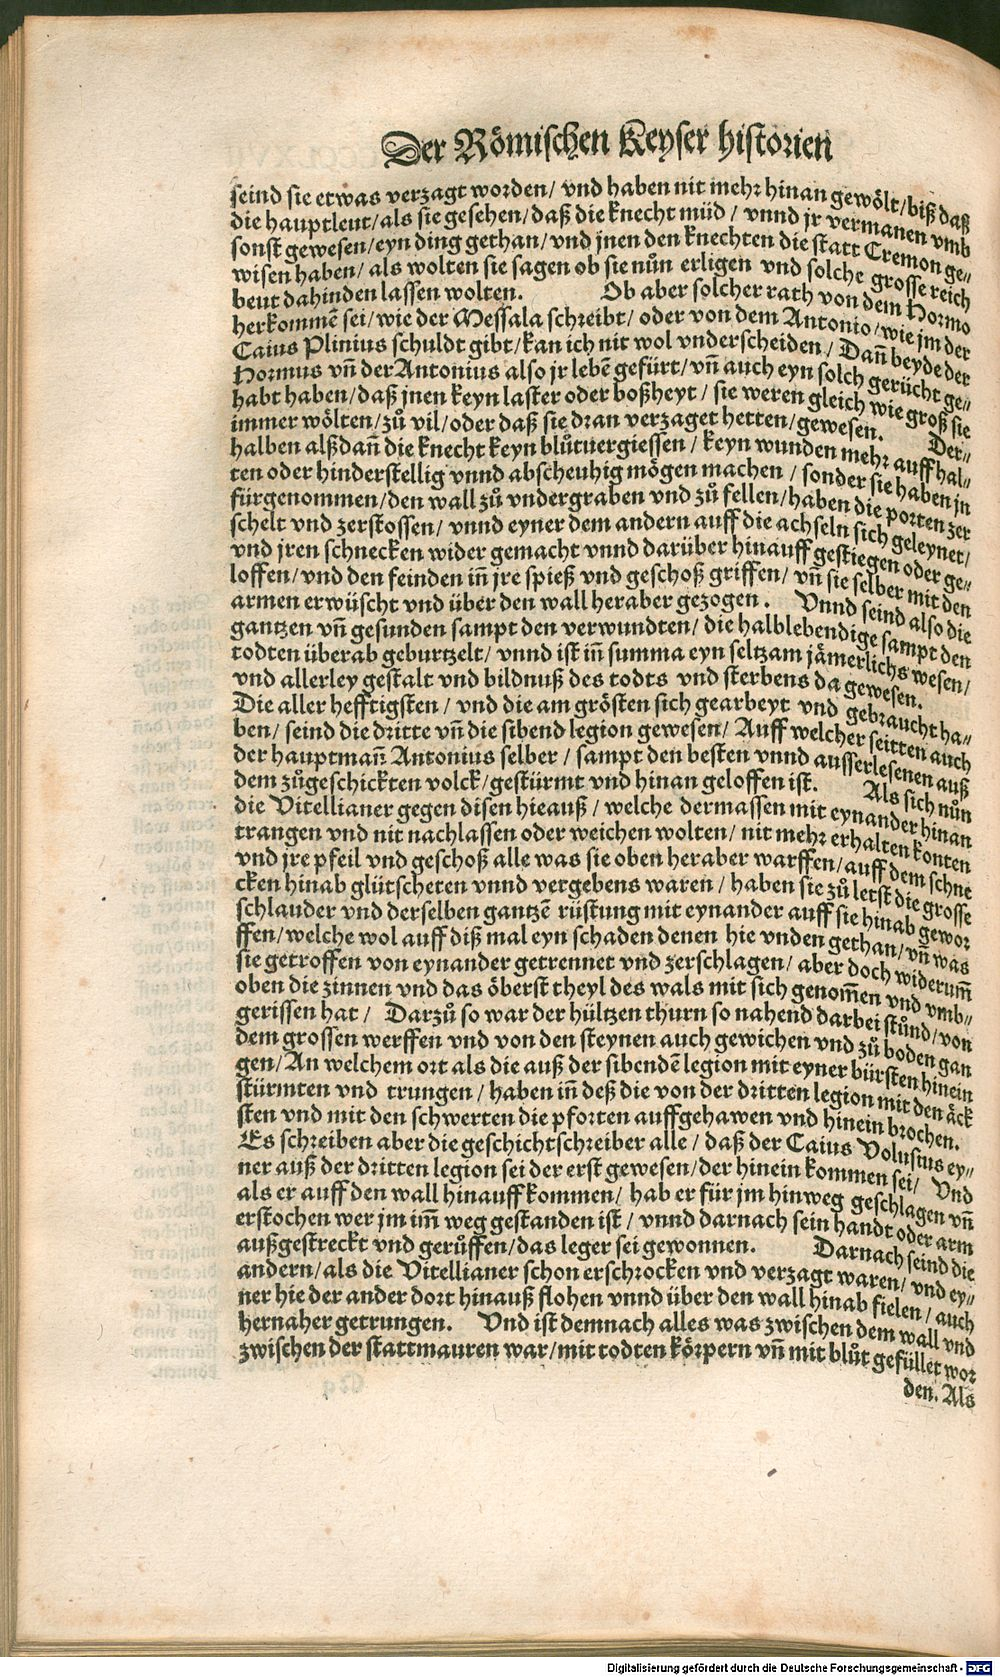 Der Römischen Keyser historien
seind sie etwas verzagt worden/ vnd haben nit mehr hinan gewölt/biß daß
die hauptleut/als sie gesehen/daß die knecht müd / vnnd jr vermanen vmb
sonst gewesen/eyn ding gethan/vnd jnen den knechten die statt Cremon ge⸗
wisen haben/ als wolten sie sagen ob sie nůn erligen vnd solche grosse reich
beut dahinden lassen wolten. Ob aber solcher rath von dem Hormo
herkommẽ sei/wie der Messala schreibt/ oder von dem Antonio/wie jm der
Caius Plinius schuldt gibt/kan ich nit wol vnderscheiden/ Dañ beyde der
Hormus vñ der Antonius also jr lebẽ gefürt/vñ auch eyn solch gerücht ge⸗
habt haben/daß jnen keyn laster oder boßheyt / sie weren gleich wie groß sie
immer wölten/zů vil/oder daß sie dran verzaget hetten/gewesen. Der⸗
halben alßdañ die knecht keyn blůtuergiessen/ keyn wunden mehr auff hal⸗
ten oder hinderstellig vnnd abscheuhig mögen machen / sonder sie haben jn
fürgenommen/den wall zů vndergraben vnd zů fellen/haben die porten zer
schelt vnd zerstossen/ vnnd eyner dem andern auff die achseln sich geleynet/
vnd jren schnecken wider gemacht vnnd darüber hinauff gestiegen oder ge⸗
loffen/vnd den feinden iñ jre spieß vnd geschoß griffen/ vñ sie selber mit den
armen erwüscht vnd über den wall heraber gezogen. Vnnd seind also die
gantzen vñ gesunden sampt den verwundten/ die halblebendige sampt den
todten überab geburtzelt/ vnnd ist iñ summa eyn seltzam jämerlichs wesen/
vnd allerley gestalt vnd bildnuß des todts vnd sterbens da gewesen.
Die aller hefftigsten / vnd die am grösten sich gearbeyt vnd gebraucht ha⸗
ben/ seind die dritte vñ die sibend legion gewesen/ Auff welcher seitten auch
der hauptmañ Antonius selber/ sampt den besten vnnd ausserlesenen auß
dem zůgeschickten volck/gestürmt vnd hinan geloffen ist. Als sich nůn
die Vitellianer gegen disen hieauß / welche dermassen mit eynander hinan
trangen vnd nit nachlassen oder weichen wolten/ nit mehr erhalten konten
vnd jre pfeil vnd geschoß alle was sie oben heraber warffen/ auff dem schne
cken hinab glütscheten vnnd vergebens waren/ haben sie zů letst die grosse
schlauder vnd derselben gantzẽ rüstung mit eynander auff sie hinab gewor
ffen/welche wol auff diß mal eyn schaden denen hie vnden gethan/ vñ was
sie getroffen von eynander getrennet vnd zerschlagen/ aber doch widerum̃
oben die zinnen vnd das öberst theyl des wals mit sich genom̃en vnd vmb⸗
gerissen hat/ Darzů so war der hültzen thurn so nahend darbei stůnd/ von
dem grossen werffen vnd von den steynen auch gewichen vnd zů boden gan
gen/An welchem ort als die auß der sibendẽ legion mit eyner bürsten hinein
stürmten vnd trungen/ haben iñ deß die von der dritten legion mit den äck
sten vnd mit den schwerten die pforten auffgehawen vnd hinein brochen.
Es schreiben aber die geschichtschreiber alle/ daß der Caius Volusius ey⸗
ner auß der dritten legion sei der erst gewesen/der hinein kommen sei/ Vnd
als er auff den wall hinauff kommen/ hab er für jm hinweg geschlagen vñ
erstochen wer jm im̃ weg gestanden ist / vnnd darnach sein handt oder arm
außgestreckt vnd gerůffen/das leger sei gewonnen. Darnach seind die
andern/als die Vitellianer schon erschrocken vnd verzagt waren/ vnd ey⸗
ner hie der ander dort hinauß flohen vnnd über den wall hinab fielen/ auch
hernaher getrungen. Vnd ist demnach alles was zwischen dem wall vnd
zwischen der stattmauren war/mit todten körpern vñ mit blůt gefüllet wor
den. Als
Digitalisierung gefördert durch die Deutsche Forschungsgemeinschaft - DFG